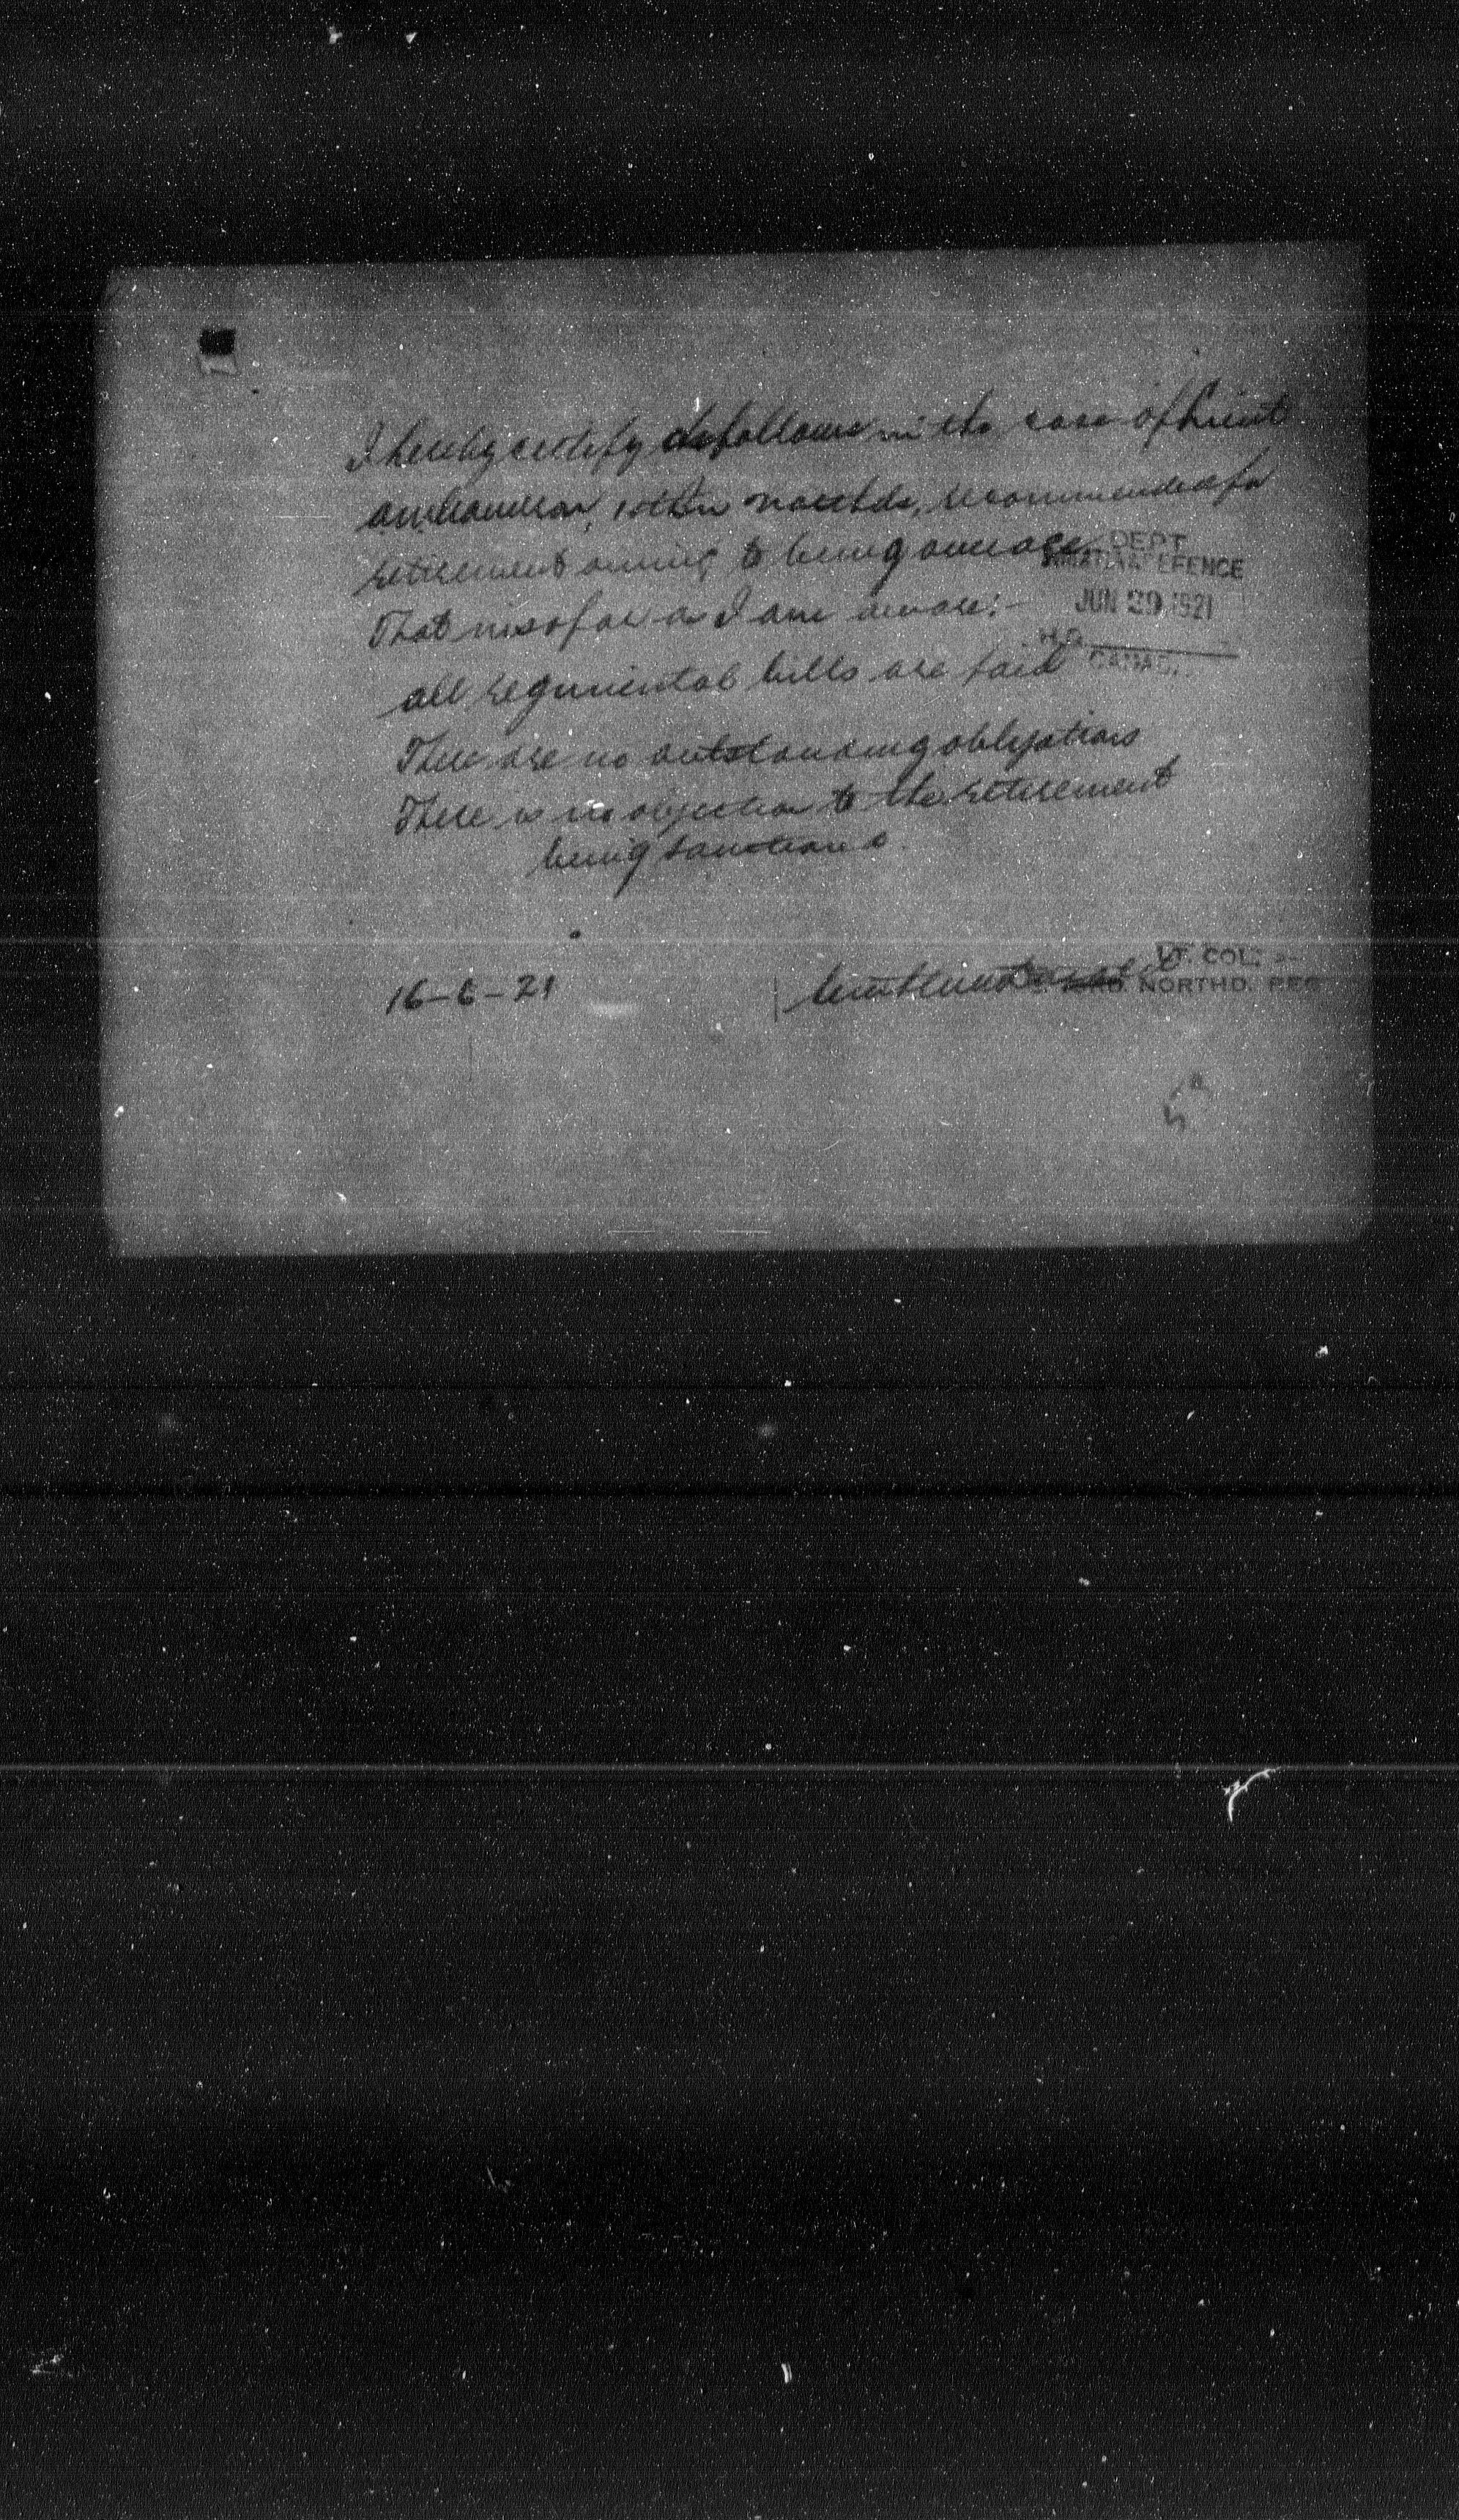 I hereby certify as follows in the case of Lieut
40th Northd, recommended for
retirement owing to being overage
DEPT
DEFENCE
JUN 29 1921
That insofar as I am aware:-
H.Q.
CANADA
all regimental bills are paid
There are no outstanding obligations
There is no objection to the retirement
being sanctioned.
LT. COL.
NORTHD. REG
16-6-21